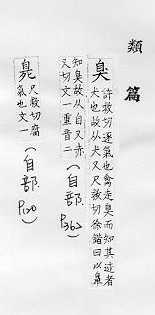 類篇
臭 許救切逐氣也禽走臭而知其迹者
犬也故从犬又尺救切徐鍇曰以鼻
知臭故从自又赤
又切文一重音二(自部. P362)
尺救切腐
氣也文一(自部.